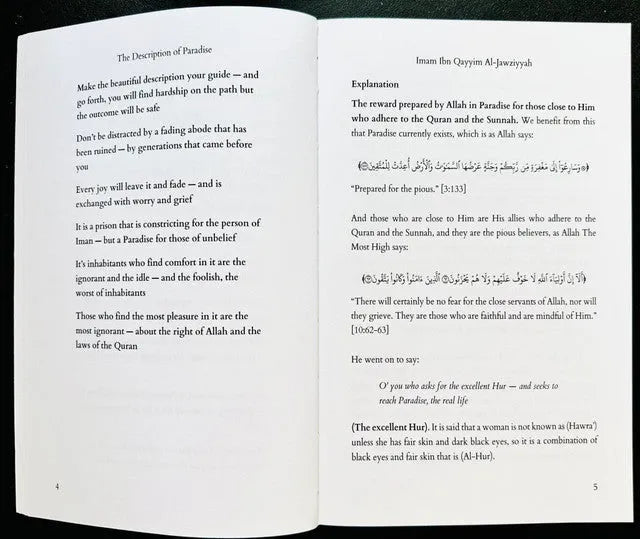 The Description of Paradise
Make the beautiful description your guide — and
go forth, you will find hardship on the path but
the outcome will be safe
Don't be distracted by a fading abode that has
been ruined — by generations that came before
you
Every joy will leave it and fade — and is
exchanged with worry and grief
It is a prison that is constricting for the person of
Iman — but a Paradise for those of unbelief
It's inhabitants who find comfort in it are the
ignorant and the idle — and the foolish, the
worst of inhabitants
Those who find the most pleasure in it are the
most ignorant — about the right of Allah and the
laws of the Quran
4
Imam Ibn Qayyim Al-Jawziyyah
Explanation
The reward prepared by Allah in Paradise for those close to Him
who adhere to the Quran and the Sunnah. We benefit from this
that Paradise currently exists, which is as Allah says:
﴿۞ وَسَارِعُوٓاْ إِلَىٰ مَغۡفِرَةٖ مِّن رَّبِّكُمۡ وَجَنَّةٍ عَرۡضُهَا ٱلسَّمَٰوَٰتُ وَٱلۡأَرۡضُ أُعِدَّتۡ لِلۡمُتَّقِينَ ١٣٣﴾
“Prepared for the pious.” [3:133]
And those who are close to Him are His allies who adhere to the
Quran and the Sunnah, and they are the pious believers, as Allah The
Most High says:
﴿أَلَآ إِنَّ أَوۡلِيَآءَ ٱللَّهِ لَا خَوۡفٌ عَلَيۡهِمۡ وَلَا هُمۡ يَحۡزَنُونَ ٦٢ ٱلَّذِينَ ءَامَنُواْ وَكَانُواْ يَتَّقُونَ ٦٣﴾
“There will certainly be no fear for the close servants of Allah, nor will
they grieve. They are those who are faithful and are mindful of Him.”
[10:62-63]
He went on to say:
O' you who asks for the excellent Hur — and seeks to
reach Paradise, the real life
(The excellent Hur). It is said that a woman is not known as (Hawra')
unless she has fair skin and dark black eyes, so it is a combination of
black eyes and fair skin that is (Al-Hur).
5